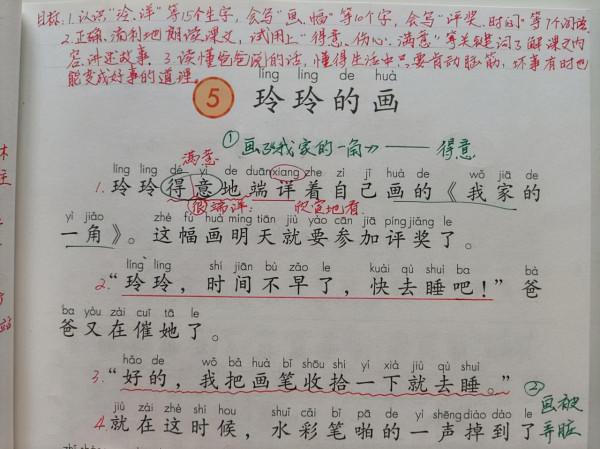 目标:1.认识"玲、详"等15个生字,会写"画、幅"等10个字,会写"评奖、时间"等7个词语
2.正确、流利地朗读课文,试用上"得意、伤心、满意"等关键词了解课文内
容,讲述故事 3.读懂爸爸说的话,懂得生活中只要肯动脑筋,坏事有时也
能变成好事的道理。
líng ling de huà
5 玲玲的画
①画《我家的一角》—— 得意
满意
líng ling dé yì de duān xiang zhe zì jǐ huà de wǒ jiā de
1.玲玲得意地端详着自己画的《我家的
很 端详: 欣赏地看
yì jiǎo zhè fú huà míng tiān jiù yào cān jiā píng jiǎng le
一角》。这幅画明天就要参加评奖了。
líng ling shí jiān bù zǎo le kuài qù shuì ba bà
2."玲玲,时间不早了,快去睡吧!"爸
ba yòu zài cuī tā le
爸又在催她了。
hǎo de wǒ bǎ huà bǐ shōu shi yí xià jiù qù shuì
3."好的,我把画笔收拾一下就去睡。"
②画被
弄脏
jiù zài zhè shí hou shuǐ cǎi bǐ pā de yì shēng diào dào le
4.就在这时候,水彩笔啪的一声掉到了